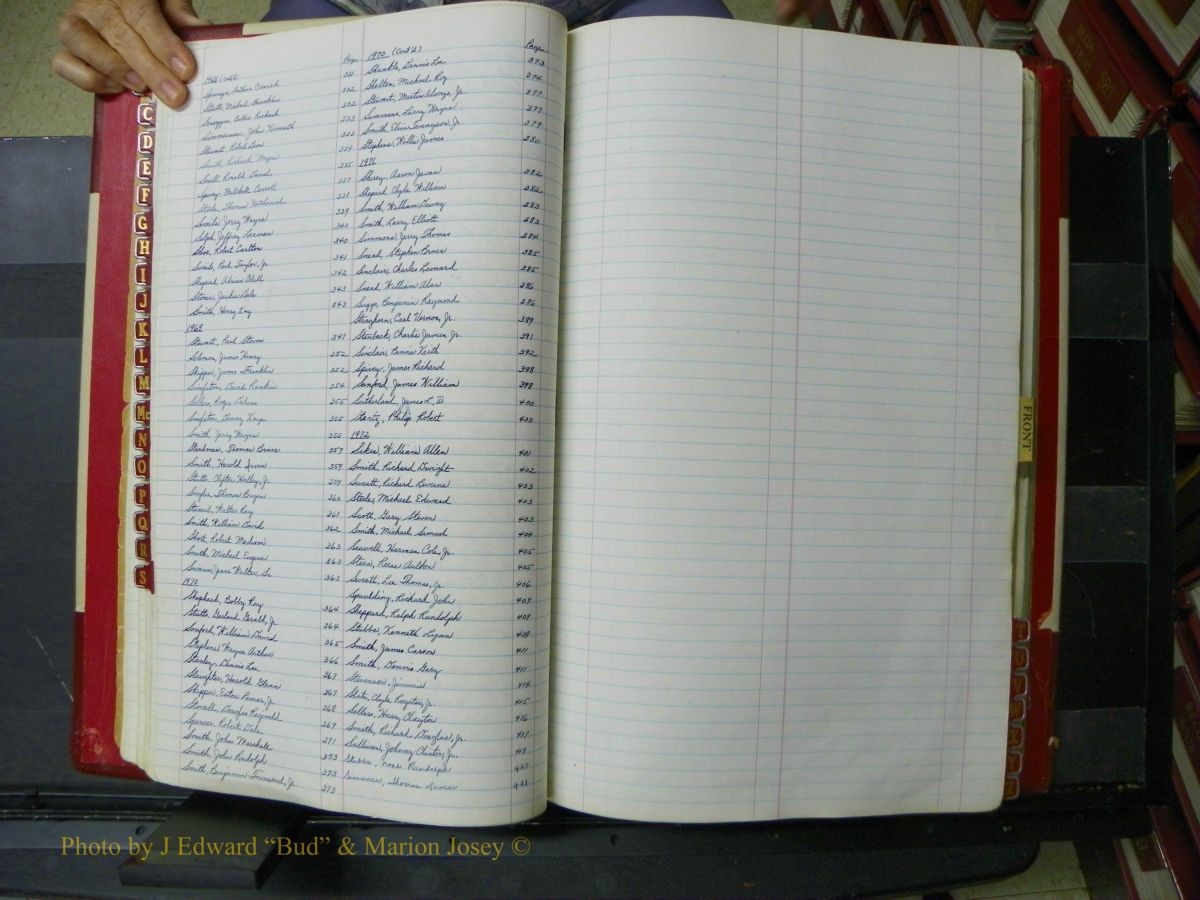 C
D
E
F
G
H
I
J
K
L
M
Mc
N
O
P
Q
R
S
Page
Arthur Conrad 331
Stutts, Michael Franklin 332
Richard 332
Simmerman, John Kenneth 333
Stewart, Robert Leon 333
Smith, Richard Wayne 334
Snell, Ronald 335
Spivey, Mitchell Carroll 337
Steele, Thomas Nathaniel 338
Jerry Wayne 339
Selph, Jeffrey 340
Robert Carlton 340
Paul Taylor, Jr. 341
Shepard, Adrian 342
Stone, Jackie 343
Smith, Henry 343
1969
Stewart, Paul Steven 347
Solomon, James Henry 352
Skipper, James Franklin 352
Singleton, David Rankin 354
Sellers, Roger 355
Singleton, Lonny 355
Smith, Jerry Wayne 355
Steedman, Thomas Bruce 357
Smith, Harold 359
Stutts, Clifton Jr. 359
Snyder, Thomas Bryan 360
Stancil, Walter Ray 361
Smith, William David 362
Robert Madison 363
Smith, Michael Eugene 363
Swann, Jesse Walter, Sr. 363
1970
Shephard, Bobby Ray 364
Stutts, Garland Gerald, Jr. 364
Sanford, William David 365
Stephens, Wayne Arthur 366
Stanley, Dennis Lee 367
Slaughter, Harold Glenn 367
Skipper, Jr. 368
Stovall, Douglas Reginald 369
Spencer, Robert Dale 371
Smith, John Marshall 373
Smith, John Randolph 373
Smith, Benjamin Townsend, Jr. 373
1970 (Cont'd) Page
Shankle, Dennis Lee 373
Shelton, Michael Roy 374
Stewart, Martin Alonzo, Jr. 377
Simmons, Larry Wayne 377
Smith, Jr. 379
Stephens, Willie James 380
1971
Shirey, Aaron Javan 382
Shepard, Clyde William 382
Smith, William Dewey 383
Smith, Larry Elliott 383
Simmons, Jerry Thomas 384
Snead, Stephen Bruce 385
Sinclair, Charles Leonard 385
Snead, William Alan 386
Suggs, Benjamin Raymond 386
Strayhorn, Carl Vernon, Jr. 389
Stanback, Charlie James, Jr. 391
Sinclair, Bennie Keith 392
Spivey, James Richard 398
Sanford, James William 398
Sutherland, James L., III 400
Stentz, Philip Robert 400
1972
Sikes, William Allen 401
Smith, Richard Dwight 402
Sweatt, Richard Laverne 403
Steele, Michael Edward 403
Scott, Gary Steven 403
Smith, Michael Samuel 404
Seawell, Herman Cole, Jr. 405
Steen, Reese Aulton 405
Sweatt, Lee Thomas, Jr. 406
Spaulding, Richard John 409
Sheppard, Ralph Randolph 409
Stubbs, Kenneth Lynn 409
Smith, James Carson 411
Smith, Dennis Gary 411
Stevenson, Jimmie 414
Slate, Clyde Royster, Jr. 415
Sellers, Harry Clayton 416
Smith, Richard Douglas, Jr. 417
Sullivan, Johnny Clinton, Jr.
Stubbs, Randolph
Simmons, Thomas Lamar 421
FRONT
Photo by J Edward “Bud” & Marion Josey ©